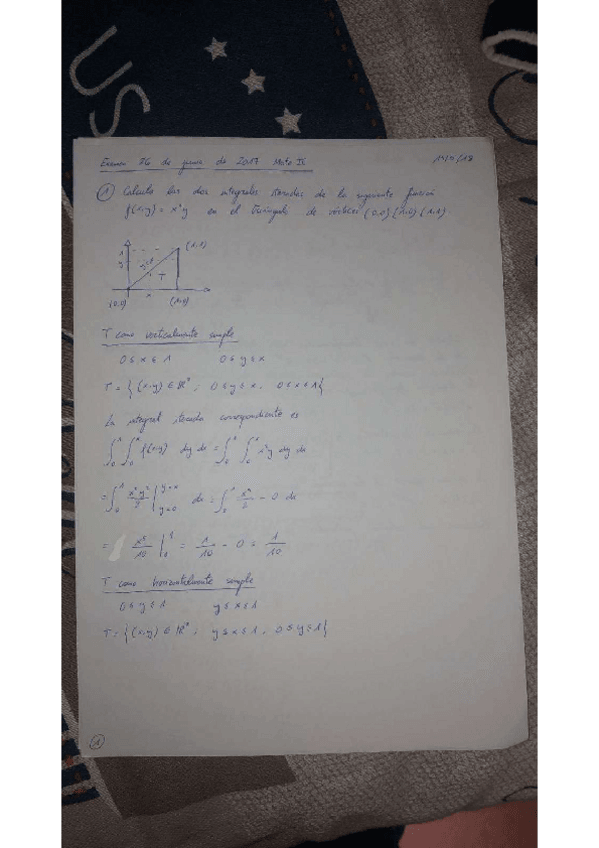 US
Examen 06 de junio de 2017 Mate II 14/5/18
① Calcula las dos integrales iteradas de la siguiente función
f(x,y) = x²y en el triángulo de vértices (0,0) (1,0) (1,1)
1 (1,1)
y
T
(0,0) x (1,0)
T como verticalmente simple
0 ≤ x ≤ 1 0 ≤ y ≤ x
T = {(x,y) ∈ ℝ² ; 0 ≤ y ≤ x , 0 ≤ x ≤ 1}
La integral iterada correspondiente es
∫₀¹ ∫₀ˣ f(x,y) dy dx = ∫₀¹ ∫₀ˣ x²y dy dx
= ∫₀¹ x²y²/2 |y=x y=0 dx = ∫₀¹ x⁴/2 - 0 dx
= x⁵/10 |₀¹ = 1/10 - 0 = 1/10
T como horizontalmente simple
0 ≤ y ≤ 1 y ≤ x ≤ 1
T = {(x,y) ∈ ℝ² ; y ≤ x ≤ 1 , 0 ≤ y ≤ 1}
①